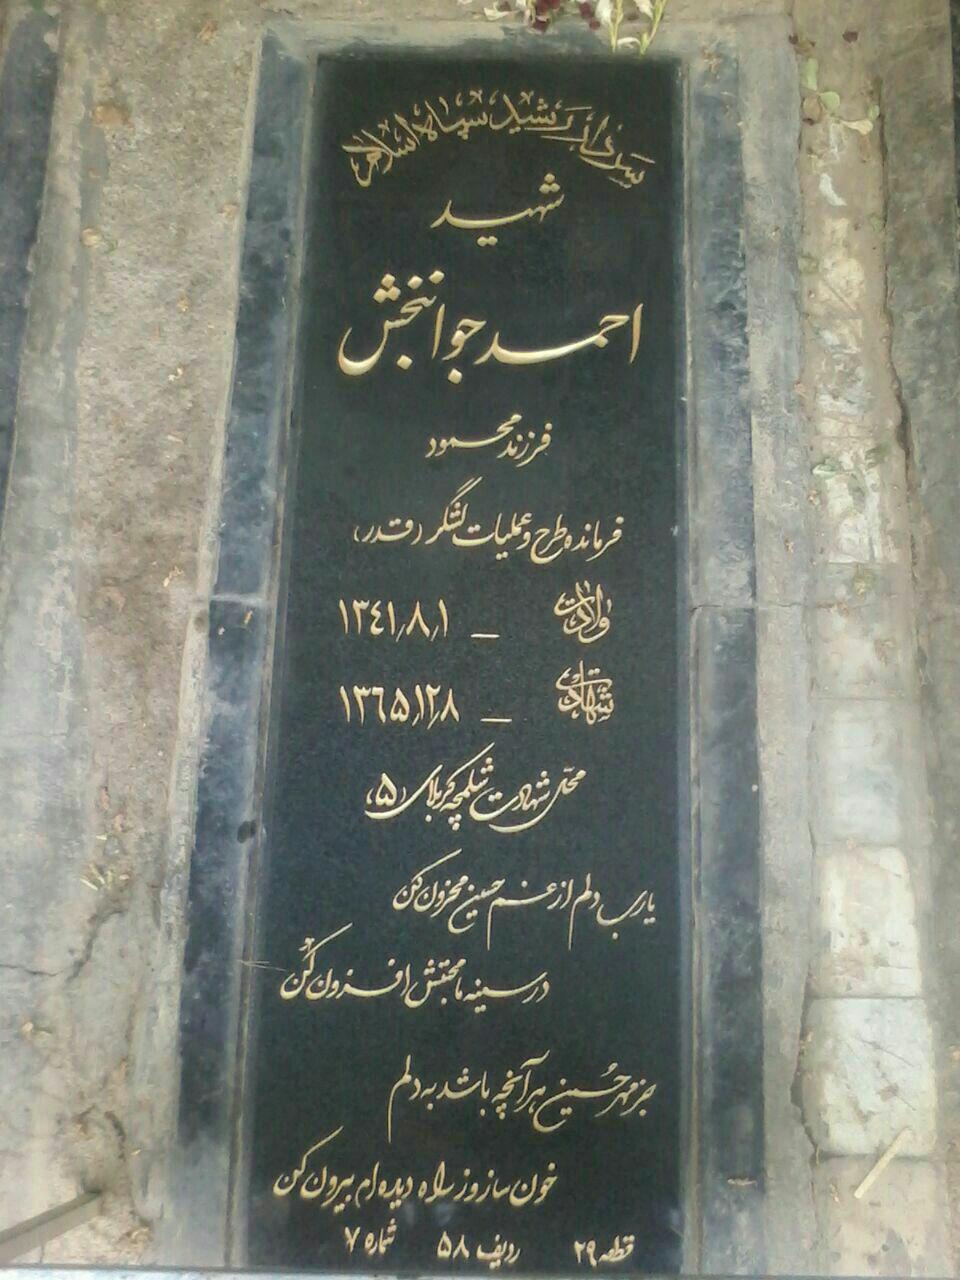 سردار رشید سپاه اسلام
شهید
احمد جوانبخش
فرزند محمود
فرمانده طرح و عملیات لشگر (قدر)
ولادت – ۱۳۴۱/۸/۱
شهادت – ۱۳۶۵/۱۲/۸
محل شهادت شلمچه کربلای (۵)
یارب دلم از غم حسین محزون کن
در سینه ما محبتش افزون کن
جز مهر حسین هر آنچه باشد به دلم
خون ساز و ز راه دیده ام بیرون کن
قطعه ۲۹ ردیف ۵۸ شماره ۷